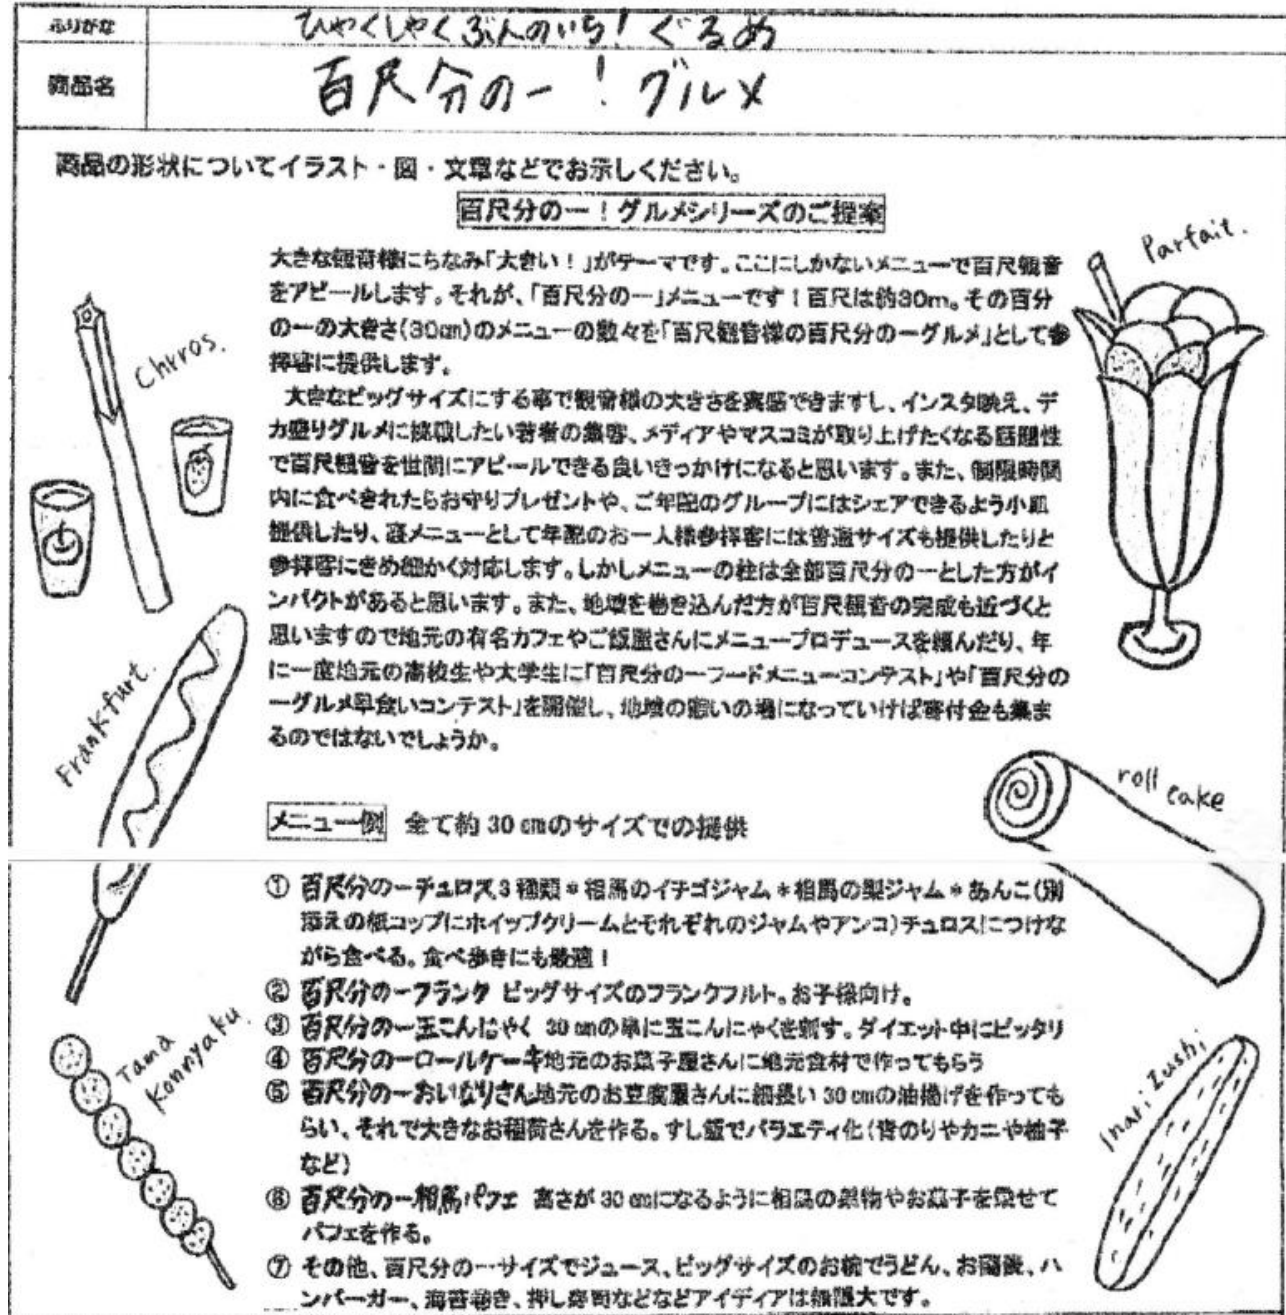 ふりがな
ひゃくしゃくぶんのいち！ぐるめ
商品名
百尺分の一！グルメ
商品の形状についてイラスト・図・文章などでお示しください。
百尺分の一！グルメシリーズのご提案
Parfait.
大きな観音様にちなみ「大きい！」がテーマです。ここにしかないメニューで百尺観音
をアピールします。それが、「百尺分の一」メニューです！百尺は約30m。その百分
の一の大きさ(30㎝)のメニューの数々を「百尺観音様の百尺分の一グルメ」として参
拝客に提供します。
Chrros.
大きなビッグサイズにする事で観音様の大きさを実感できますし、インスタ映え、デ
カ盛りグルメに挑戦したい若者の集客、メディアやマスコミが取り上げたくなる話題性
で百尺観音を世間にアピールできる良いきっかけになると思います。また、制限時間
内に食べきれたらお守りプレゼントや、ご年配のグループにはシェアできるよう小皿
提供したり、裏メニューとして年配のお一人様参拝客には普通サイズも提供したりと
参拝客にきめ細かく対応します。しかしメニューの柱は全部百尺分の一とした方がイ
ンパクトがあると思います。また、地域を巻き込んだ方が百尺観音の完成も近づくと
思いますので地元の有名カフェやご飯屋さんにメニュープロデュースを頼んだり、年
に一度地元の高校生や大学生に「百尺分の一フードメニューコンテスト」や「百尺分の
一グルメ早食いコンテスト」を開催し、地域の憩いの場になっていけば寄付金も集ま
るのではないでしょうか。
Frankfurt.
roll cake
メニュー例 全て約 30 ㎝のサイズでの提供
① 百尺分の一チュロス3種類＊相馬のイチゴジャム＊相馬の梨ジャム＊あんこ(別
添えの紙コップにホイップクリームとそれぞれのジャムやアンコ)チュロスにつけな
がら食べる。食べ歩きにも最適！
② 百尺分の一フランク ビッグサイズのフランクフルト。お子様向け。
③ 百尺分の一玉こんにゃく 30 ㎝の串に玉こんにゃくを刺す。ダイエット中にピッタリ
④ 百尺分の一ロールケーキ地元のお菓子屋さんに地元食材で作ってもらう
⑤ 百尺分の一おいなりさん地元のお豆腐屋さんに細長い 30 ㎝の油揚げを作っても
らい、それで大きなお稲荷さんを作る。すし飯でバラエティ化(青のりやカニや柚子
など)
⑥ 百尺分の一相馬パフェ 高さが 30 ㎝になるように相馬の果物やお菓子を乗せて
パフェを作る。
⑦ その他、百尺分の一サイズでジュース、ビッグサイズのお椀でうどん、お雑煮、ハ
ンバーガー、海苔巻き、押し寿司などなどアイディアは無限大です。
Tama
Konnyaku.
Inari Zushi